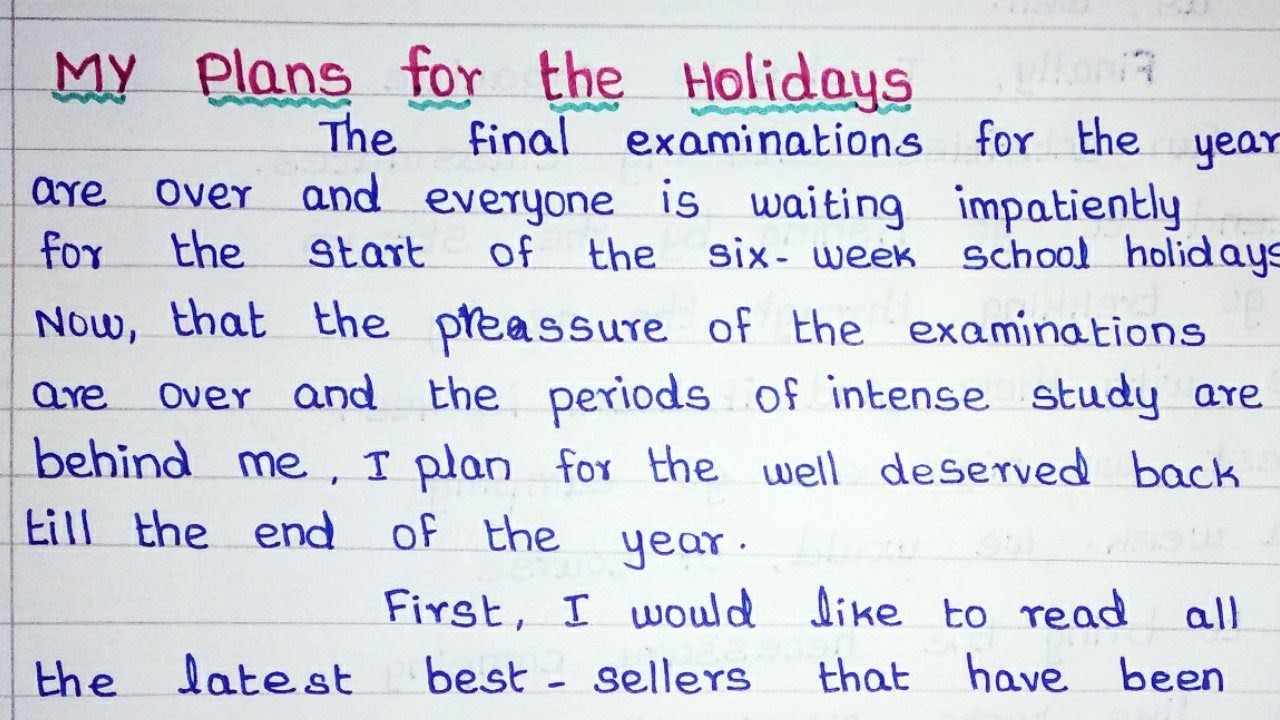 My Plans for the Holidays
The final examinations for the year
are over and everyone is waiting impatiently
for the start of the six-week school holidays
Now, that the preassure of the examinations
are over and the periods of intense study are
behind me, I plan for the well deserved back
till the end of the year.
First, I would like to read all
the latest best-sellers that have been